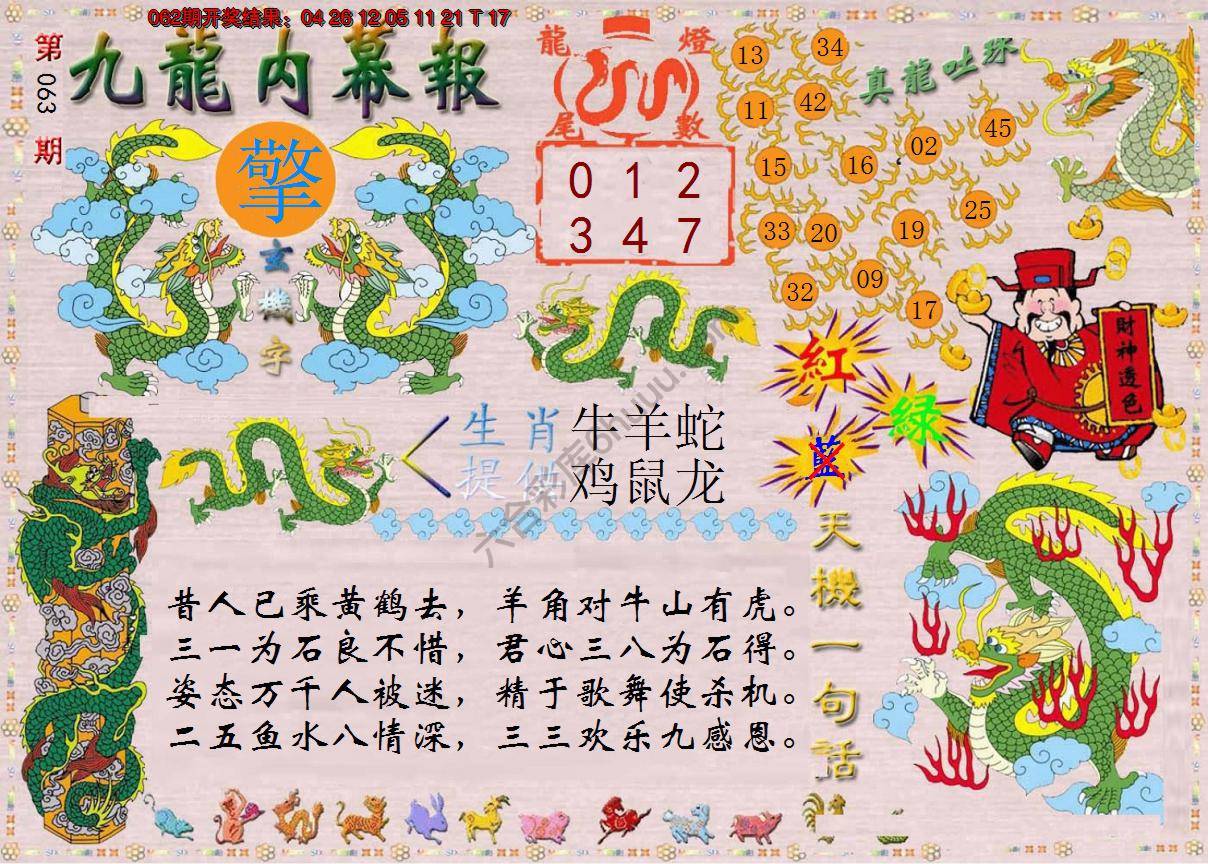 062期开奖结果：04 26 12 05 11 21 T 17
第063期
九龍内幕報
擎
玄機字
龍燈尾數
0 1 2
3 4 7
真龍吐珠
13
34
11
42
15
16
02
45
33
20
19
25
32
09
17
財神透色
紅
綠
藍
生肖 牛羊蛇
提供 鸡鼠龙
天機一句話
昔人已乘黄鹤去，羊角对牛山有虎。
三一为石良不惜，君心三八为石得。
姿态万千人被迷，精于歌舞使杀机。
二五鱼水八情深，三三欢乐九感恩。